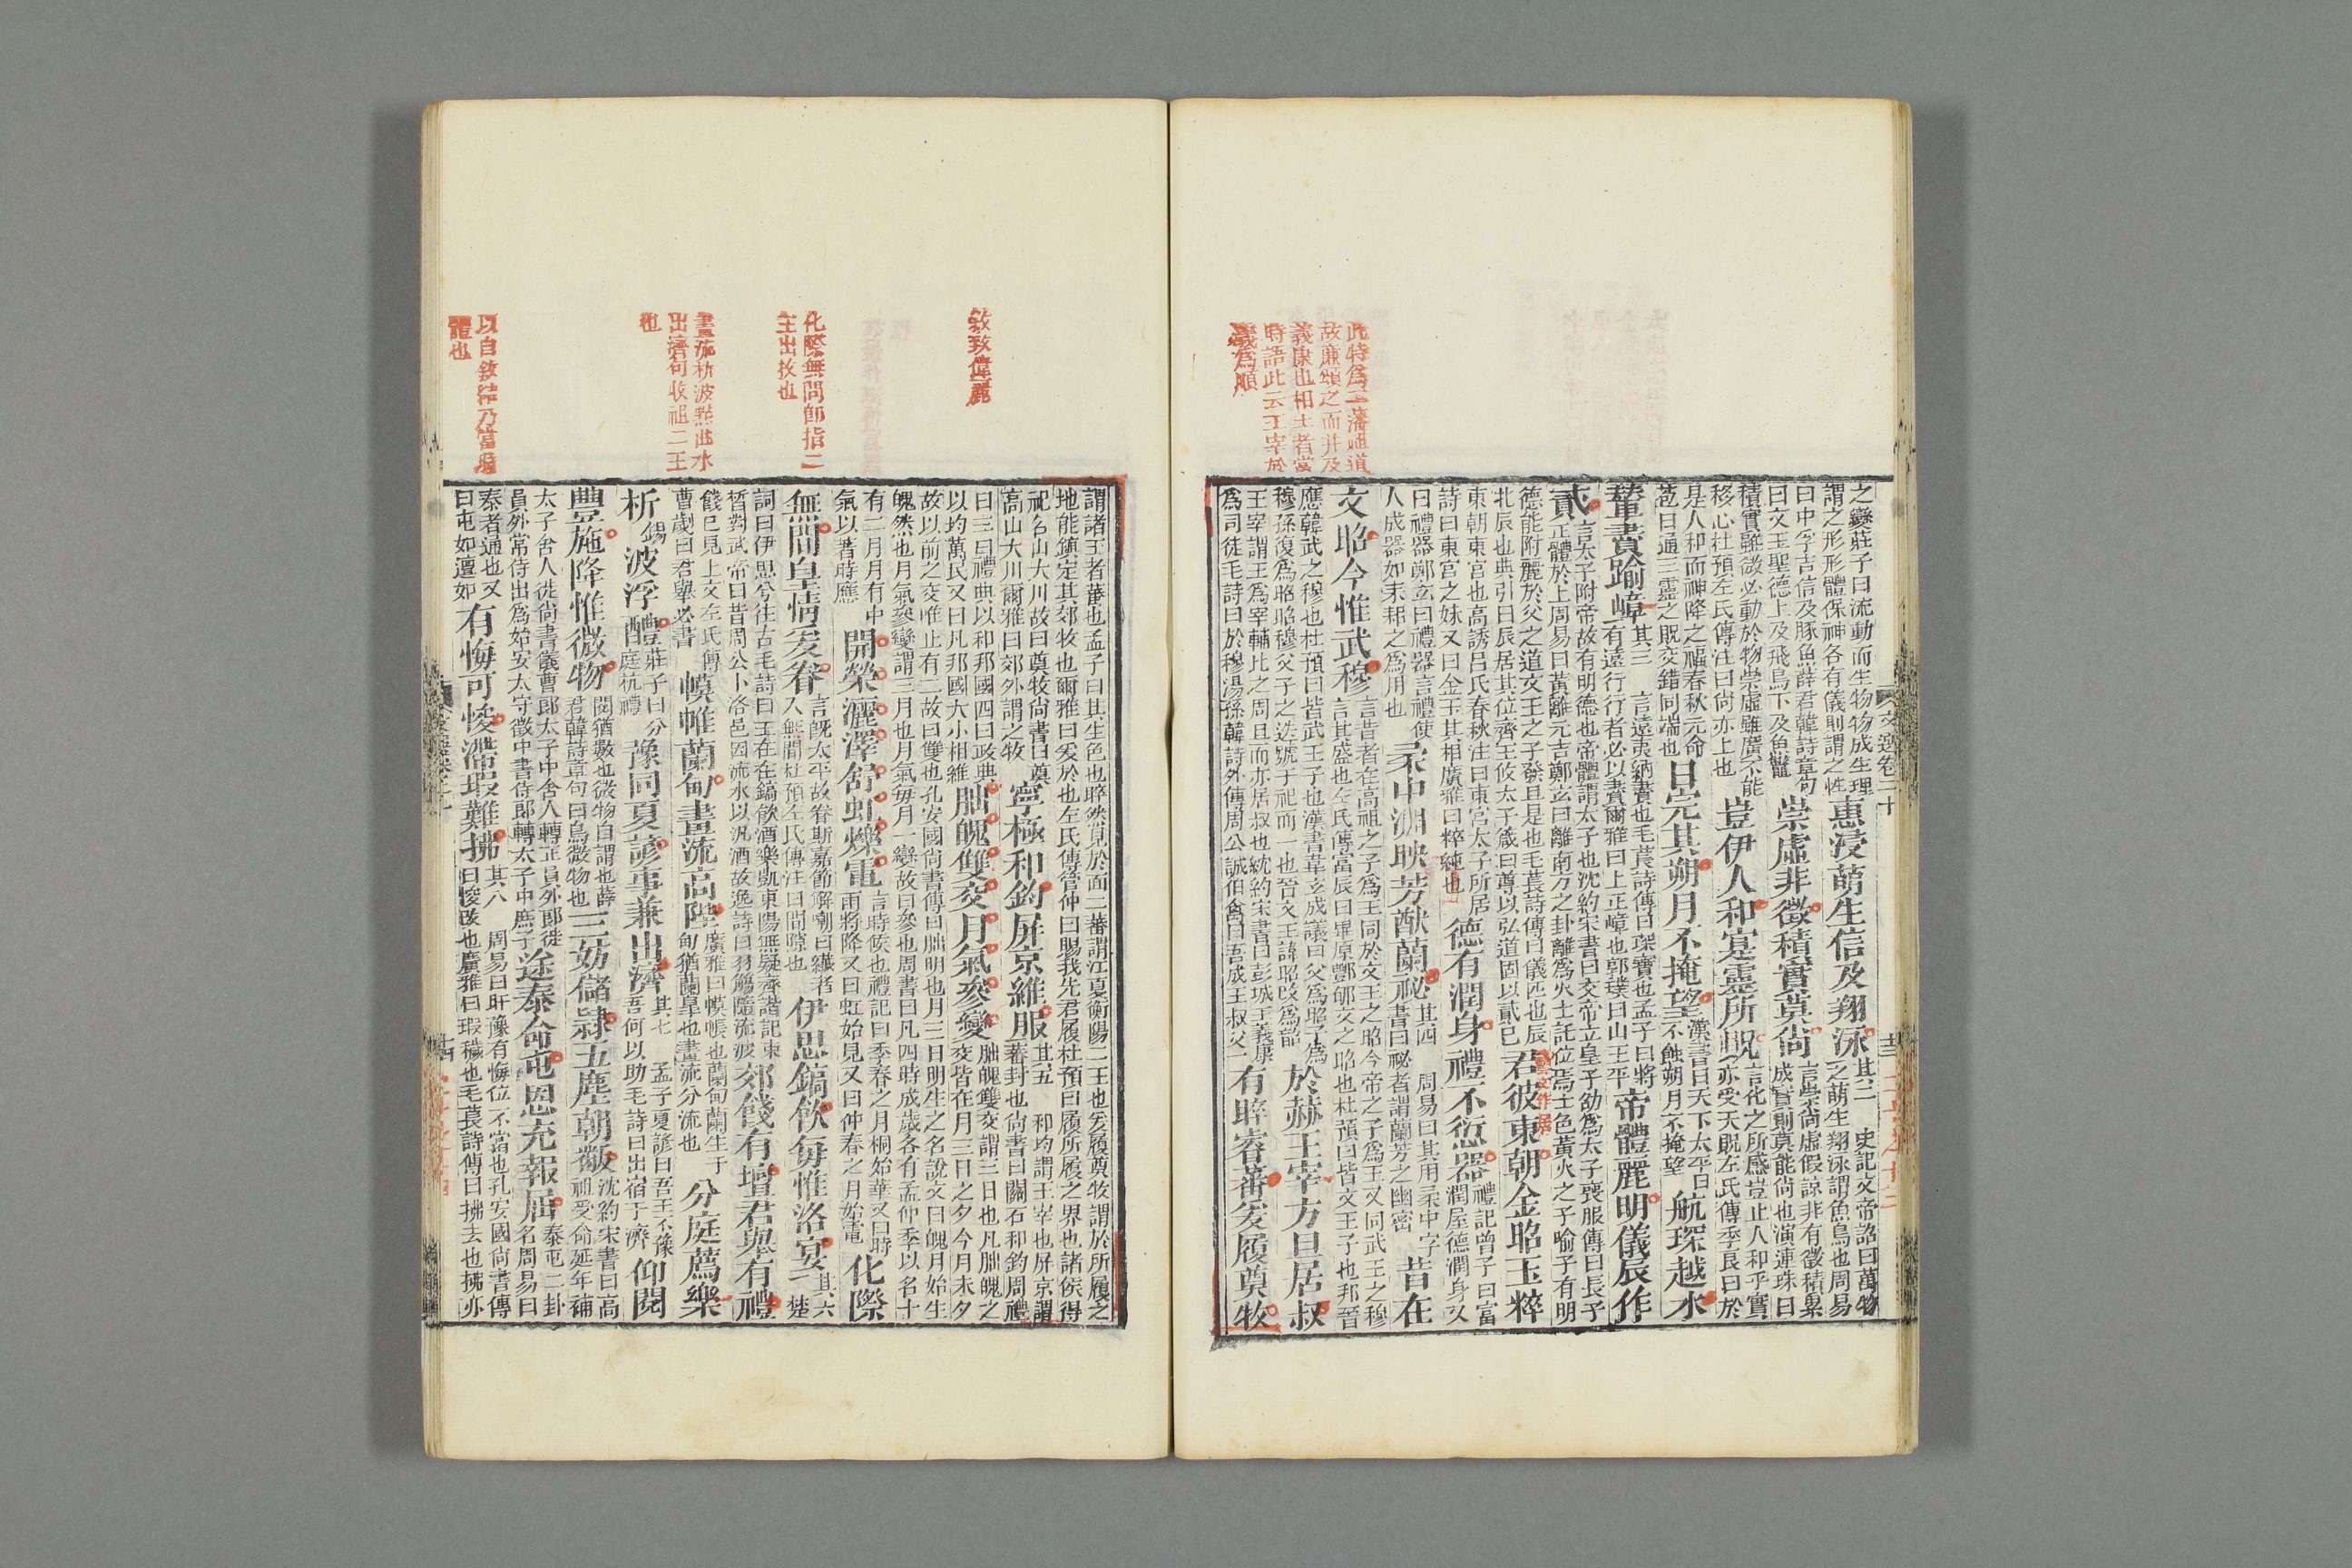 文選卷二十
之變莊子曰流動而生物物成生理
謂之形形體保神各有儀則謂之性
惠浸萌生信及翔泳
其二 史記文帝詔曰萬物
之萌生翔泳謂魚鳥也周易
曰中孚吉信及豚魚薛君韓詩章句
曰文王聖德上及飛鳥下及魚鼈
崇虛非徵積實莫尚
言崇尚虛假諒非有徵積累
成實則莫能尚也演連珠曰
積實雖微必動於物崇虛雖廣不能
移心杜預左氏傳注曰尚亦上也
豈伊人和寔靈所貺
言化之所感豈止人和乎實
亦受天貺左氏傳季良曰於
是人和而神降之福春秋元命
苞曰通三靈之貺交錯同端也
日完其朔月不掩望
漢書曰天下太平日
不蝕朔月不掩望
航琛越水
輦賮踰嶂
其三 言遠夷納賮也毛萇詩傳曰琛寶也孟子曰將
有遠行行者必以賮爾雅曰上正嶂也郭璞曰山上平
帝體麗明儀辰作
貳
言太子附帝故有明德也帝體謂太子也沈約宋書曰文帝立皇子劭為太子喪服傳曰長子
正體於上周易曰黃離元吉鄭玄曰離南方之卦離為火土託位焉土色黃火之子喻子有明
德能附麗於父之道文王之子發旦是也毛萇詩傳曰儀匹也辰
北辰也典引曰辰居其位齊王攸太子箴曰尊以弘道固以貳已
君彼東朝金昭玉粹
東朝東宮也高誘呂氏春秋注曰東宮太子所居
詩曰東宮之妹又曰金玉其相廣雅曰粹純也
德有潤身禮不愆器
禮記曾子曰富
潤屋德潤身又
曰禮器鄭玄曰禮器言禮使
人成器如耒耜之為用也
柔中淵映芳猷蘭祕
其四 周易曰其用柔中字
書曰祕者謂蘭芳之幽密
昔在
文昭今惟武穆
言昔者在高祖之子為王同於文王之昭今帝之子為王又同武王之穆
言其盛也左氏傳富辰曰畢原酆郇文之昭也杜預曰皆文王子也邘晉
應韓武之穆也杜預曰皆武王子也漢書韋玄成議曰父為昭子為
穆孫復為昭昭穆父子之迭號于祀而一也晉文王諱昭改為韶
於赫王宰方旦居叔
王宰謂王為宰輔比之周旦而亦居叔也沈約宋書曰彭城王義康
為司徒毛詩曰於穆湯孫韓詩外傳周公誡伯禽曰吾成王叔父
有睟睿蕃爰履奠牧
此特為二藩述道
故廉頌之而并及
義康也相王者當
時語此云王宰於
義為順
謂諸王者蕃也孟子曰其生色也睟然見於面二蕃謂江夏衡陽二王也爰履奠牧謂於所履之
地能鎮定其郊牧也爾雅曰爰於也左氏傳管仲曰賜我先君履杜預曰履所履之界也諸侯得
祀名山大川故曰奠牧尚書曰奠
高山大川爾雅曰郊外謂之牧
寧極和鈞屏京維服
其五 和均謂王宰也屏京謂
二蕃封也尚書曰關石和鈞周禮
曰三曰禮典以和邦國四曰政典
以均萬民又曰凡邦國大小相維
朏魄雙交月氣參變
朏魄雙交謂三日也凡朏魄之
交皆在月三日之夕今月未夕
故以前之交唯止有二故曰雙也孔安國尚書傳曰朏明也月三日明生之名說文曰魄月始生
魄然也月氣參變謂三月也月氣每月一變故曰參也周書曰凡四時成歲各有孟仲季以名十
有二月月有中
氣以著時應
開榮灑澤舒虹爍電
言時候也禮記曰季春之月桐始華又曰時
雨將降又曰虹始見又曰仲春之月始電
化際
無間皇情爰眷
言既太平故眷斯嘉節解嘲曰纖者
入無間杜預左氏傳注曰間隙也
伊思鎬飲每惟洛宴
其六 楚
詞曰伊思兮往古毛詩曰王在在鎬飲酒樂凱東陽無疑齊諧記束
皙對武帝曰昔周公卜洛邑因流水以汎酒故逸詩曰羽觴隨流波
郊餞有壇君舉有禮
餞已見上文左氏傳
曹劌曰君舉必書
幙帷蘭甸畫流高陛
廣雅曰幙帳也蘭甸蘭生于
甸猶蘭皐也畫流分流也
分庭薦樂
析
錫
波浮醴
莊子曰分
庭抗禮
豫同夏諺事兼出濟
其七 孟子夏諺曰吾王不豫
吾何以助毛詩曰出宿于濟
仰閱
豐施降惟微物
閱猶數也微物自謂也薛
君韓詩章句曰鳥微物也
三妨儲隸五塵朝黻
沈約宋書曰高
祖受命延年補
太子舍人徙尚書儀曹郎太子中舍人轉正員外郎徙
員外常侍出為始安太守徵中書侍郎轉太子中庶子
途泰命屯恩充報屈
泰屯二卦
名周易曰
泰者通也又
曰屯如邅如
有悔可悛滯瑕難拂
其八 周易曰盱豫有悔位不當也孔安國尚書傳
曰悛改也廣雅曰瑕穢也毛萇詩傳曰拂去也拂亦
敘致偉麗
化際無間即指二
王出牧也
畫流析波點曲水
出濟句收祖二王
也
以自敘結乃當時
體也